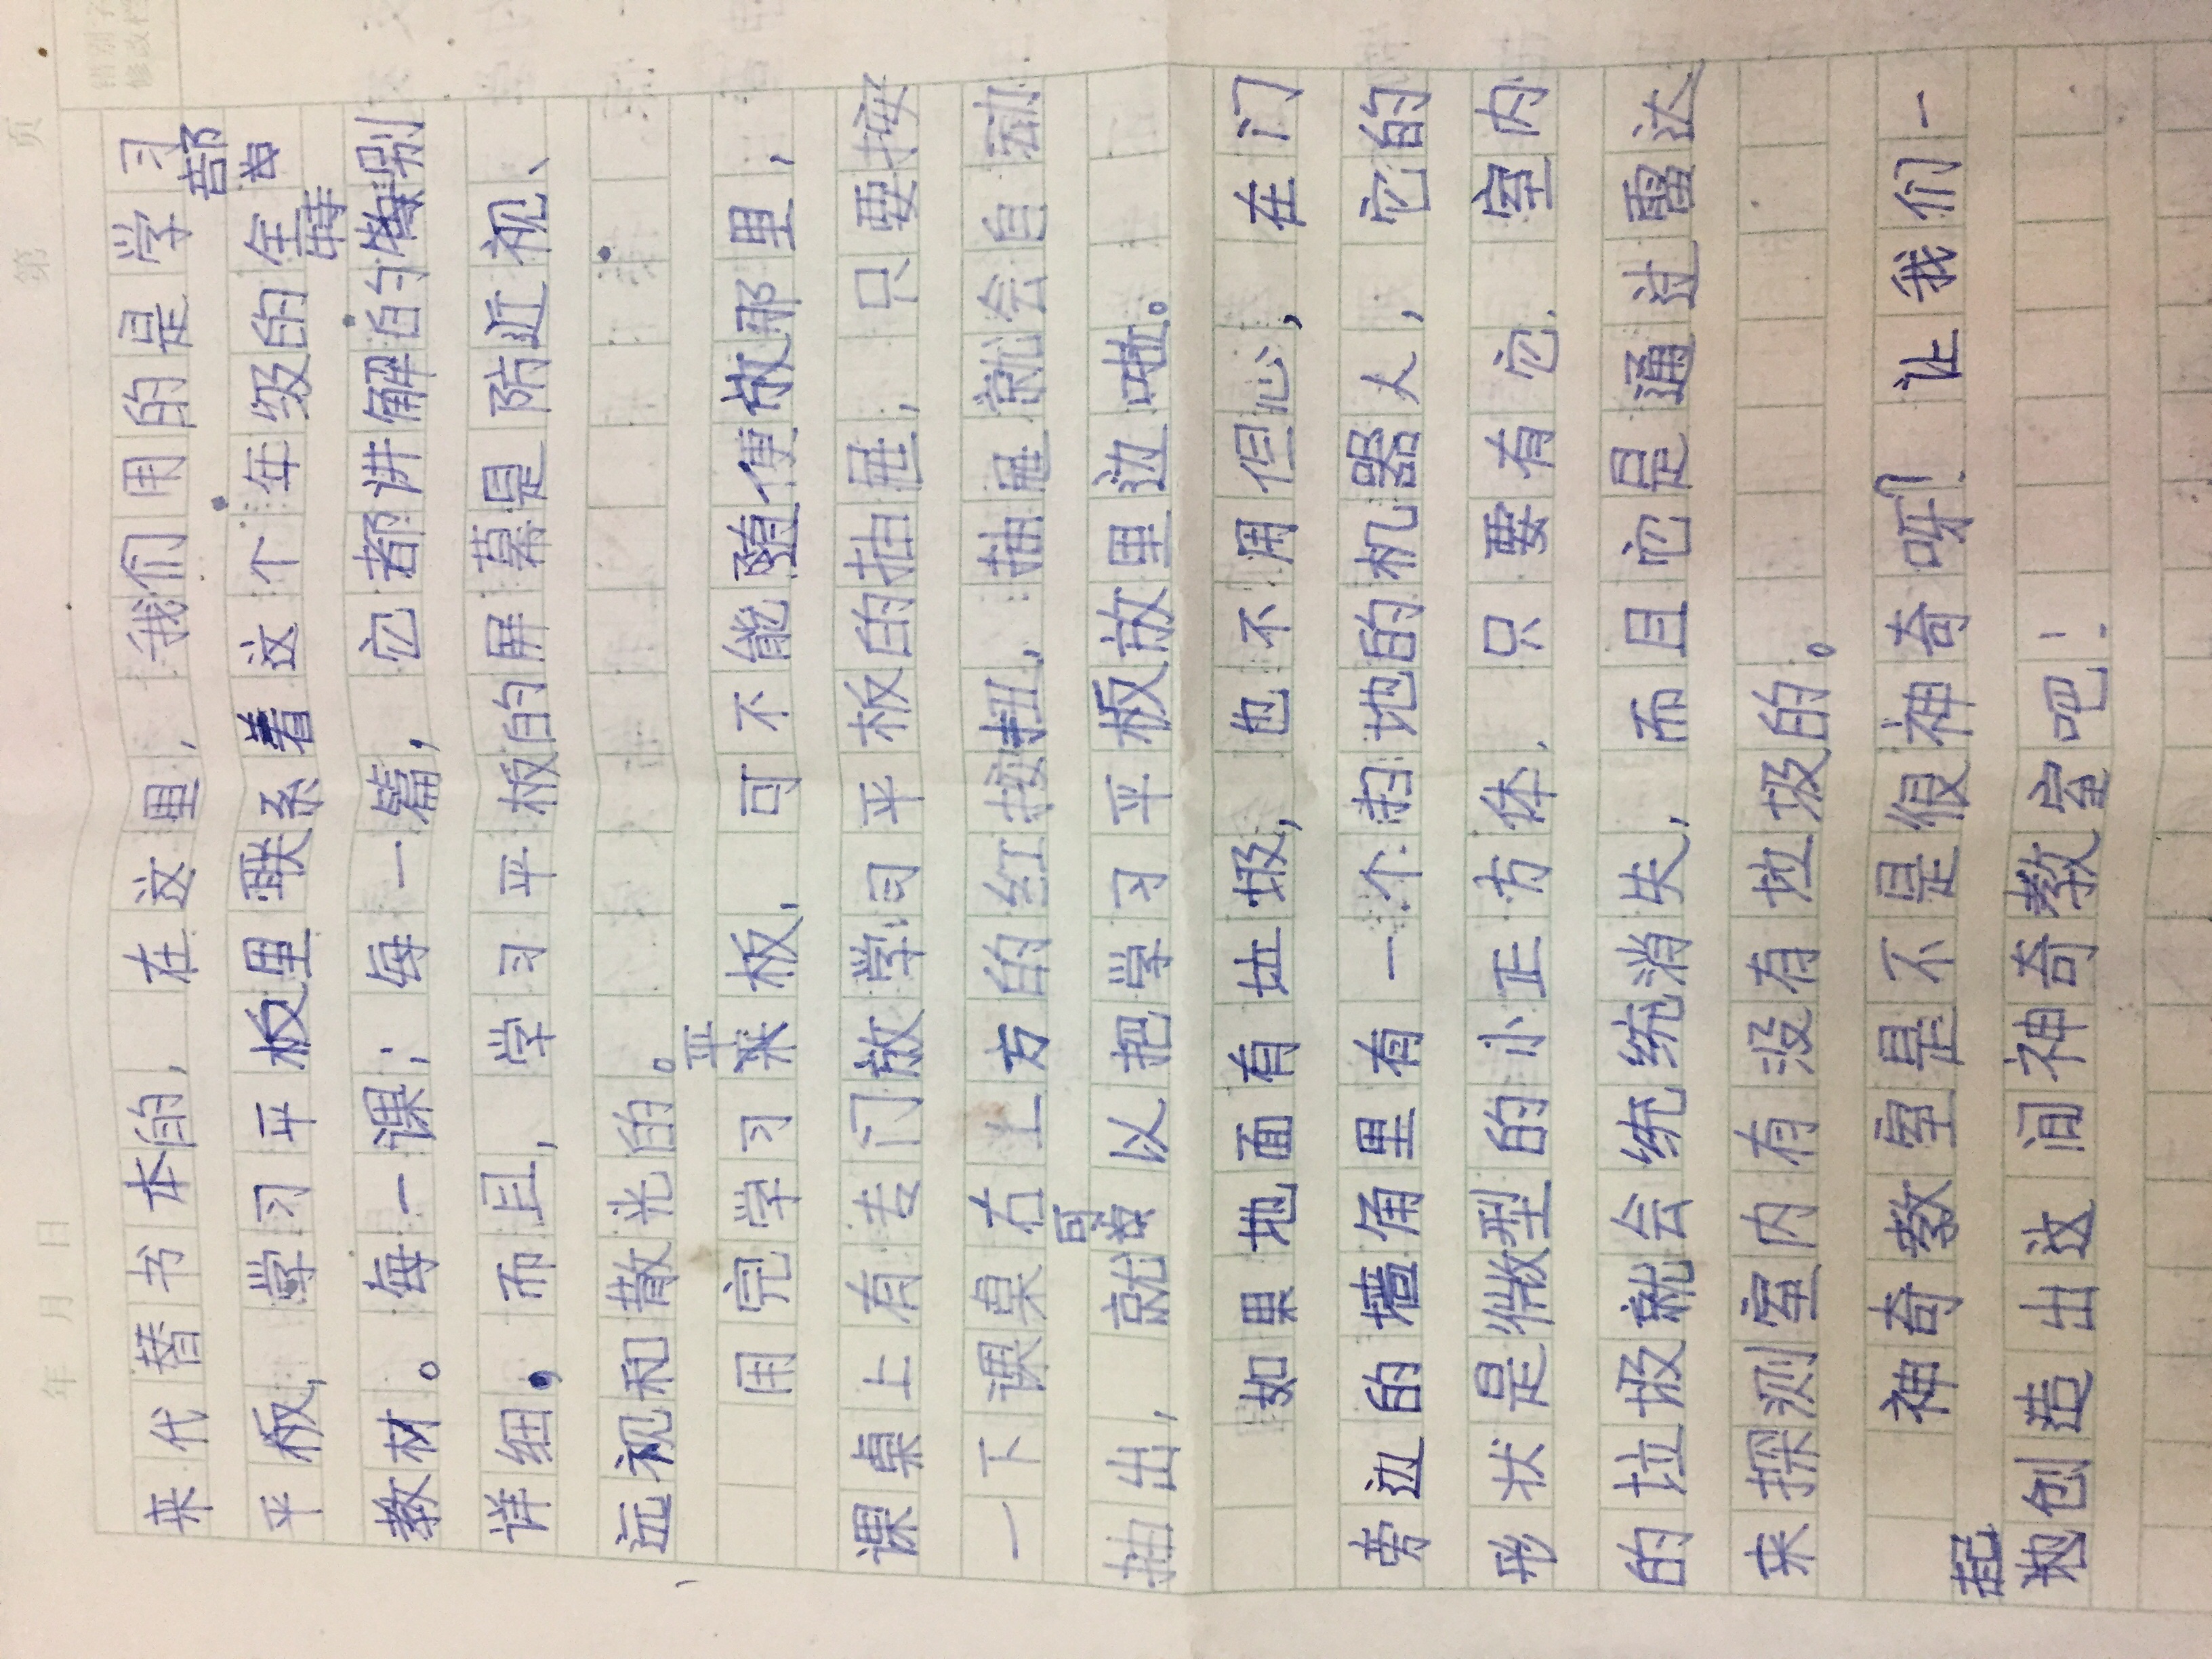 年 月 日 第 页
错别字
修改栏
来代替书本的,在这里,我们用的是学习
平板,学习平板里联系着这个年级的全部
教材。每一课;每一篇,它都讲解的特别
详细,而且,学习平板的屏幕是防近视、
远视和散光的。
用完学习平板,可不能随便放那里,
课桌上有专门放学习平板的抽屉,只要按
一下课桌右上方的红按扭,抽屉就会自动
抽出,就可以把学习平板放里边啦。
如果地面有垃圾,也不用但心,在门
旁边的墙角里有一个扫地的机器人,它的
形状是微型的小正方体.只要有它.室内
的垃圾就会统统消失,而且它是通过雷达
来探测室内有没有垃圾的。
神奇教室是不是很神奇呀?让我们一
起创造出这间神奇教室吧!